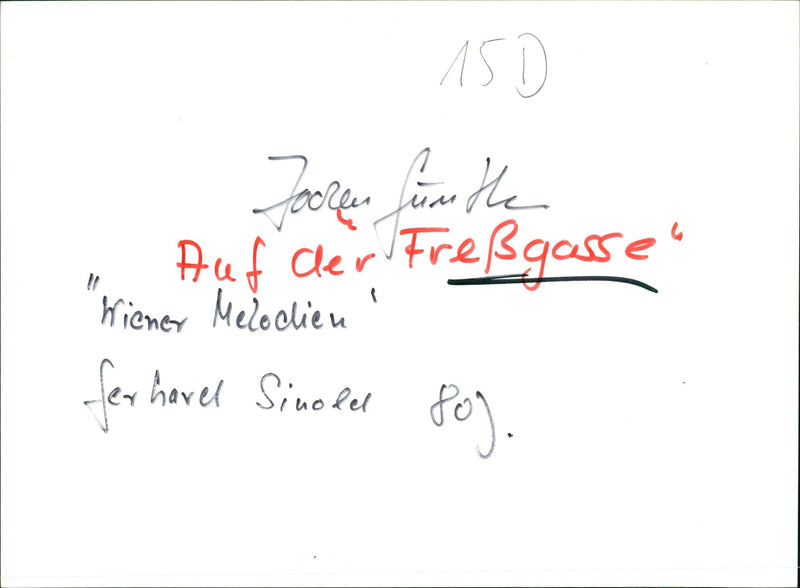 15 D
Jochen Günth
Auf der "Freßgasse"
"Wiener Melodien"
Gerhard Sinold 80 J.